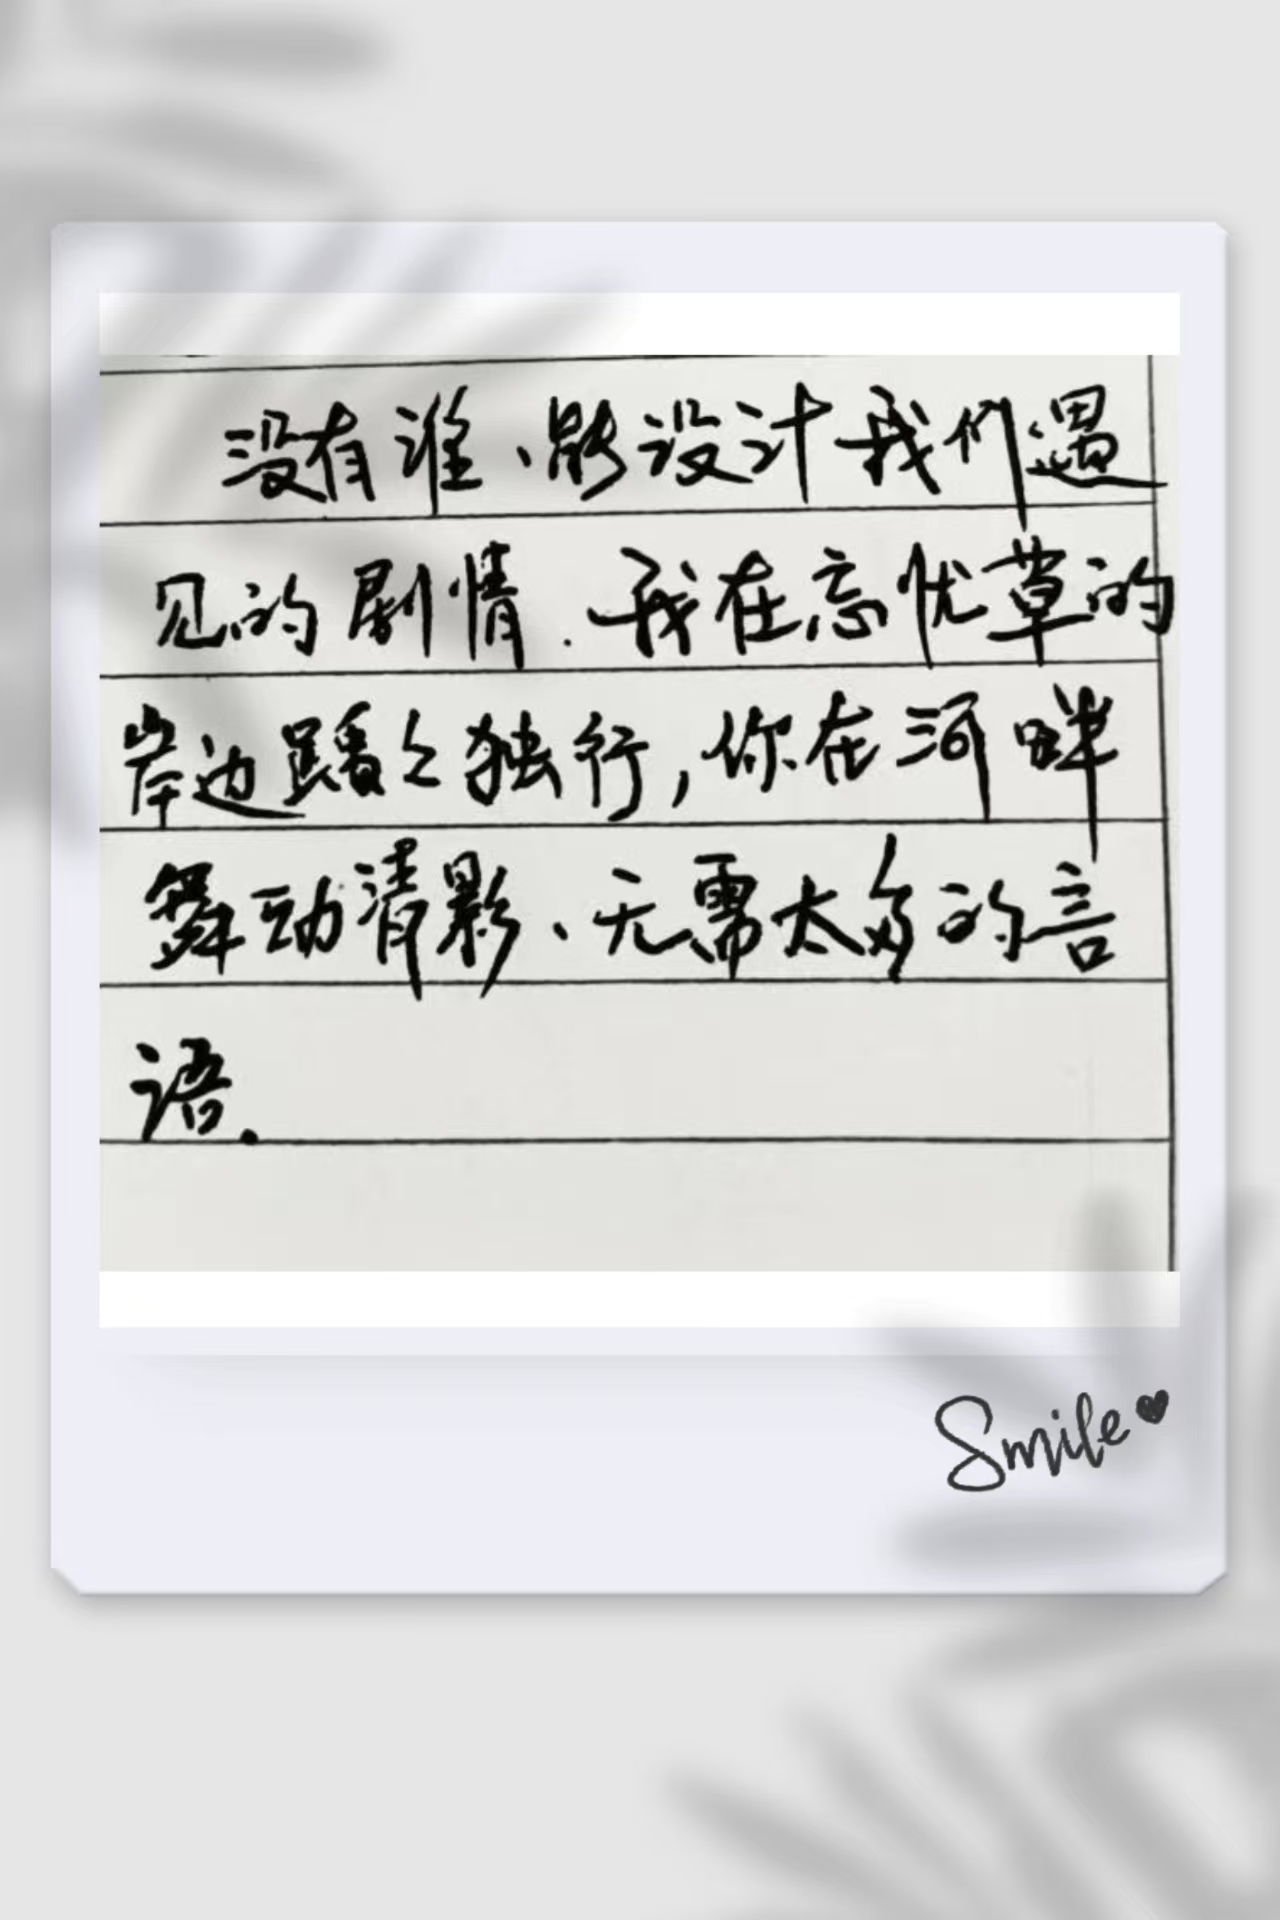 没有谁、能设计我们遇
见的剧情.我在忘忧草的
岸边踽々独行,你在河畔
舞动清影、无需太多的言
语.
Smile